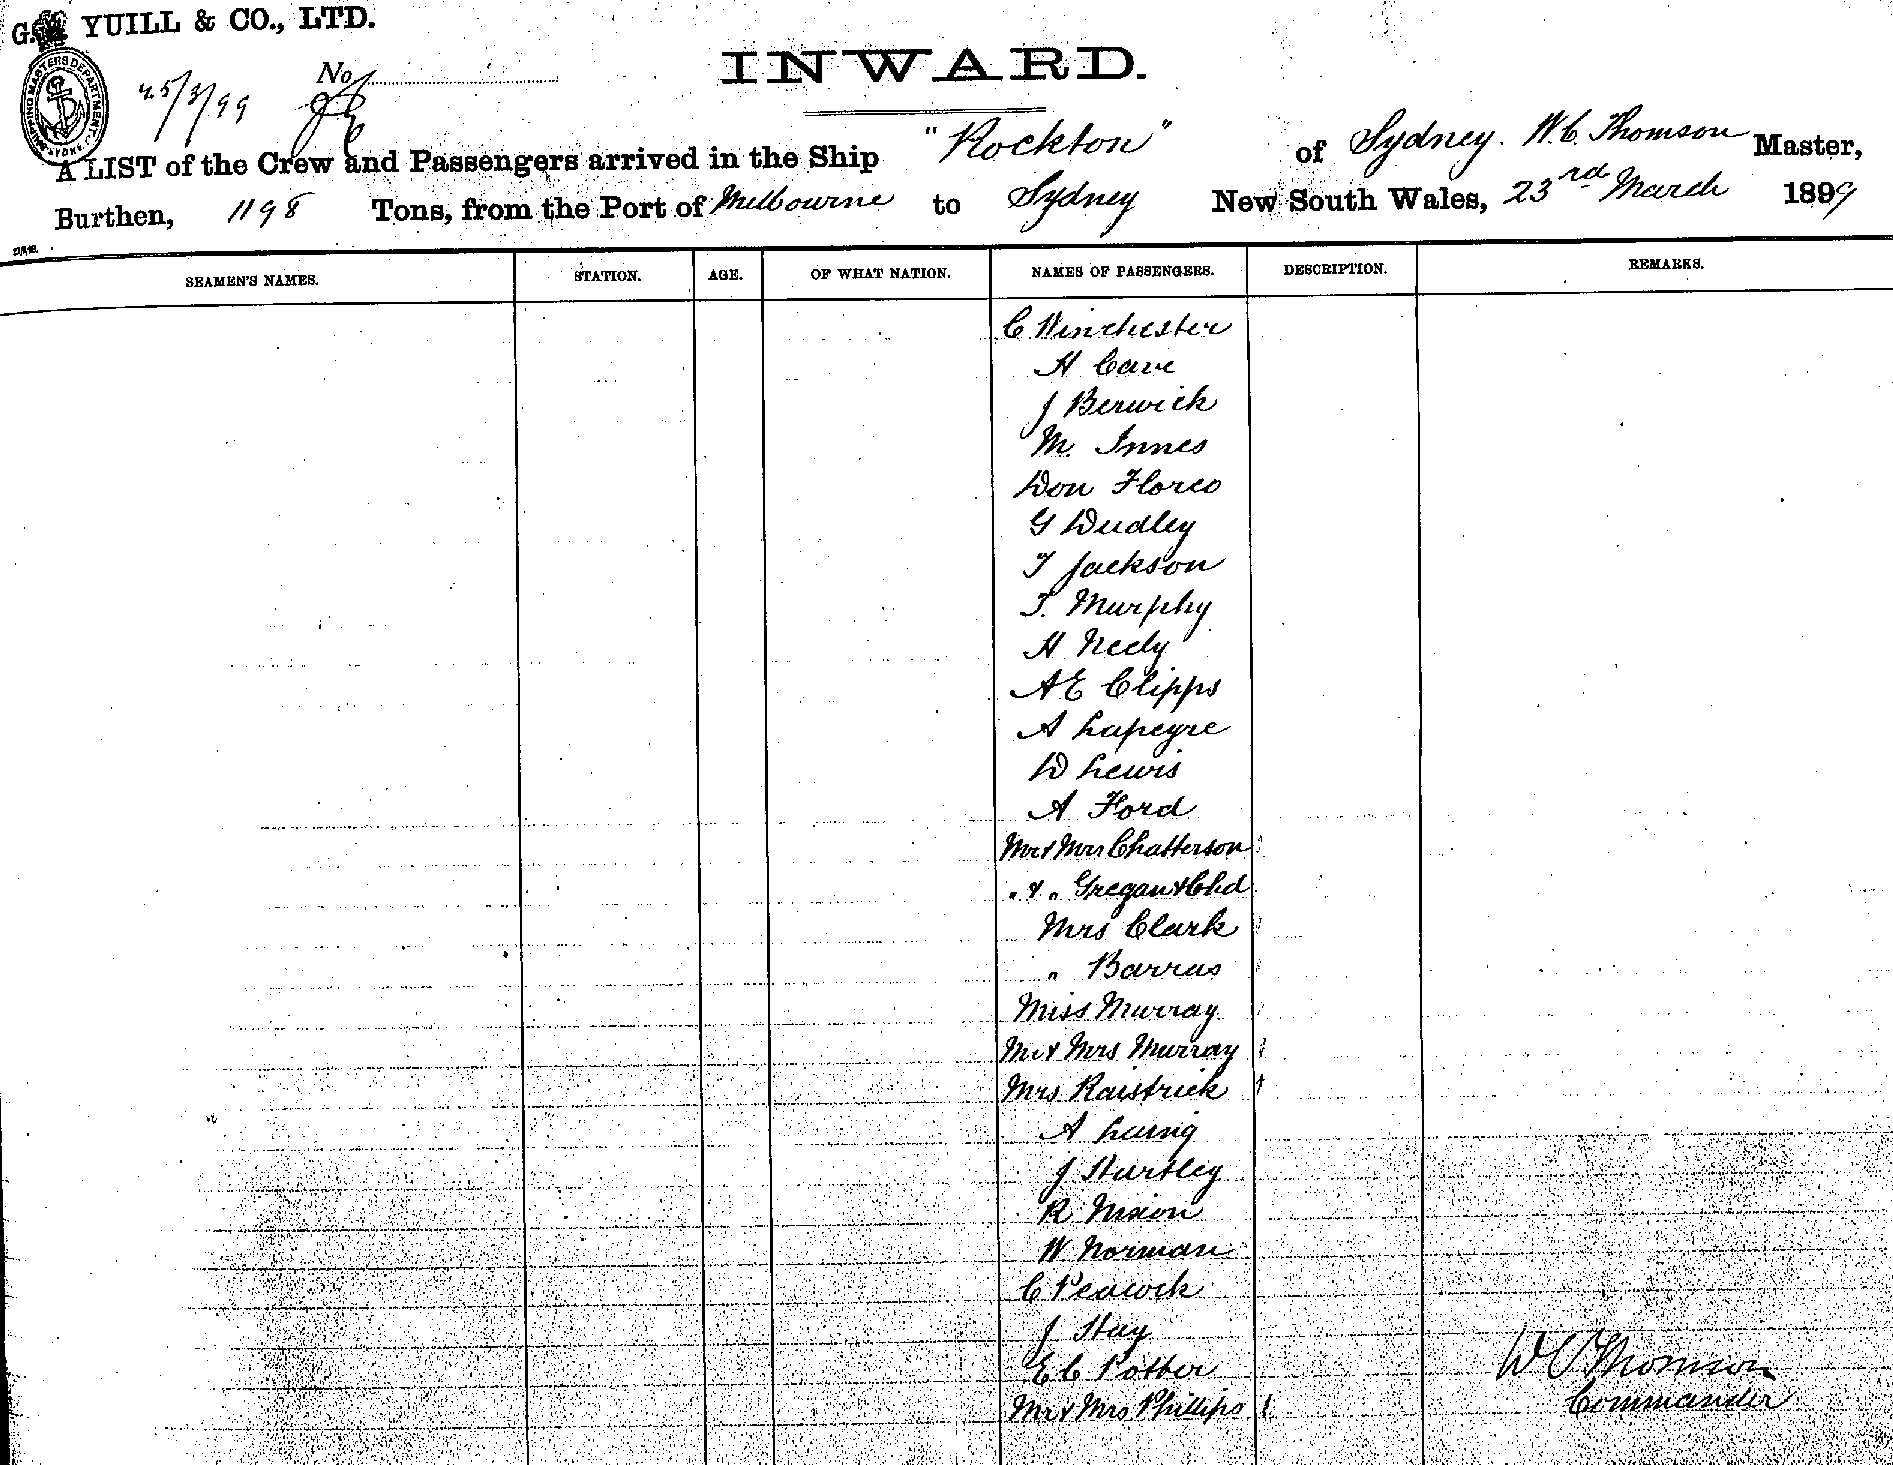 G. YUILL & CO., LTD.
INWARD.
SHIPPING MASTERS DEPARTMENT SYDNEY
25/3/99
No
A LIST of the Crew and Passengers arrived in the Ship "Rockton" of Sydney. W. C. Thomson Master,
Burthen, 1198 Tons, from the Port of Melbourne to Sydney New South Wales, 23rd March 1899
SEAMEN'S NAMES. STATION. AGE. OF WHAT NATION. NAMES OF PASSENGERS. DESCRIPTION. REMARKS.
C Winchester
H Cave
J Berwick
M. Innes
Don Floreo
G Dudley
T Jackson
T. Murphy
H Neely
A E Clipps
A Lapeyre
D Lewis
A Ford
Mr & Mrs Chatterson
" & " Gregan & Chd
Mrs Clark
" Barras
Miss Murray
Mr & Mrs Murray
Mrs Raistrick
A Laing
J Hartley
R Nixon
W Norman
C Peacock
J Hay
E C Potter
Mr & Mrs Phillips
W C Thomson
Commander